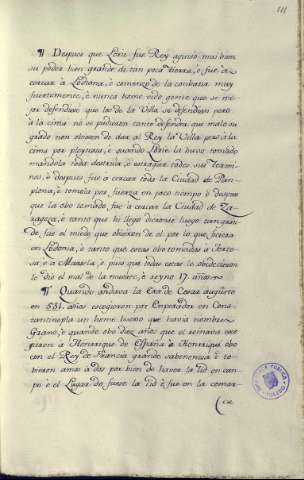 111
¶ Despues que Loric fue Rey aguisó mas bien
su poder bien grande de tan poca tierra, è fue à
cercar à Ledona, è comenzò de la combatir muy
fuertemente, è nunca tiene vido gente que se me-
jor defendiese que los de la Villa se defendien pero
à la cima no se pudieron tanto defender que malo su
grado non oviesen de dar al Rey la Villa pero à la
cima por pleytesia, è quando Loric la hubo tomado
mandòla toda destruir, è estragar todos sus termi-
nos, è despues fue à cercar toda la Ciudad de Pam-
plona, è tomòla por fuerza en poco tiempo è despues
que la obo tomado, fue à cercar la Ciudad de Za-
ragoza, è tanto que hi llego dieronse luego tan gran-
de, fue el miedo que obieron de el por lo que ficiera
en Ledona, è tanto que estas obo tomadas è
sa, è à Maiarla, è pues que todas estas le obedecieron
le diò el mal de la muerte, è reynò 17. años
¶ Quando andava la Era de Cesar augusto
en 551. años escogieron por Emperador en Cons-
tantinopla un home bueno que havia nombre
Grano, è quando obo diez años que el reinara este
priara à Henarrique de España à Henrriqui obo
con el Rey de Francia grande cabenencia è to-
bieron amos à dos por bien de haver la lid en cam-
po è el Lugar do fuese la lid è fue en la comar-
(ca